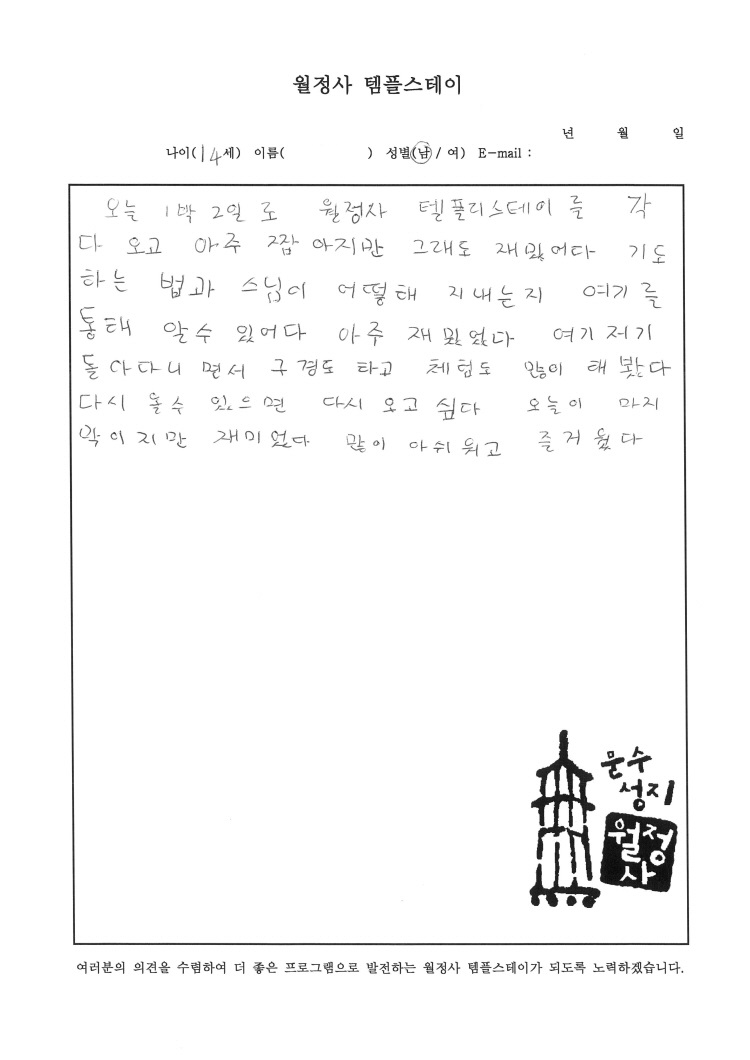 월정사 템플스테이
년 월 일
나이(14세) 이름( ) 성별(남/여) E-mail :
오늘 1박 2일로 월정사 텔플리스테이를 각
다 오고 아주 짭아지만 그래도 재밌어다 기도
하는 법과 스님이 어떻태 지내는지 여기를
통태 알수 있어다 아주 재밌었다 여기저기
돌아다니면서 구경도 타고 체험도 많이 태봤다
다시 올수 있으면 다시 오고 싶다 오늘이 마지
막이지만 재미었다 많이 아쉬워고 즐거웠다
문수
성지
월정
사
여러분의 의견을 수렴하여 더 좋은 프로그램으로 발전하는 월정사 템플스테이가 되도록 노력하겠습니다.